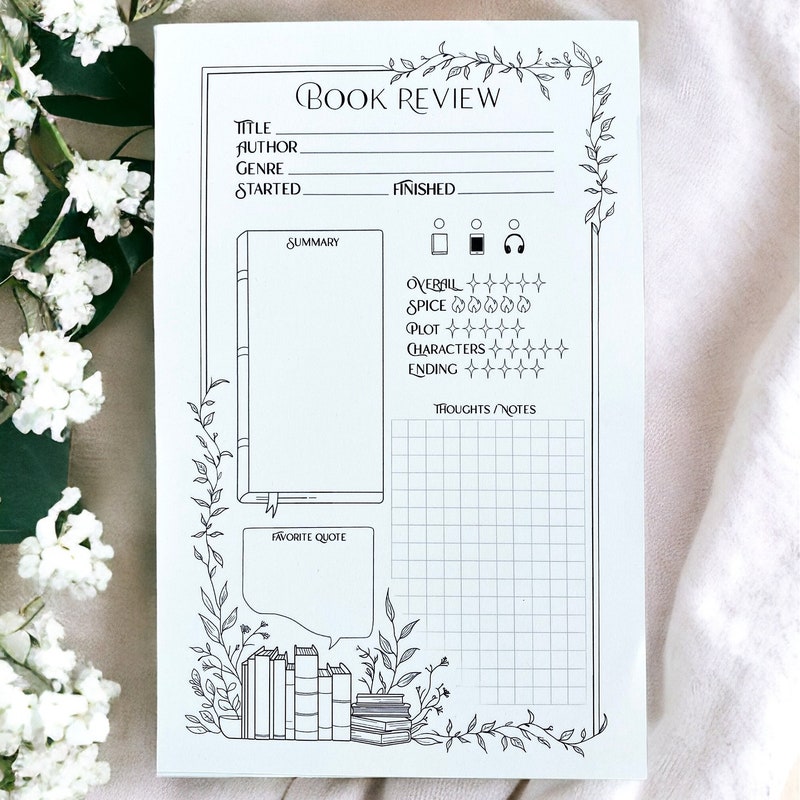 BOOK REVIEW
TITLE
AUTHOR
GENRE
STARTED FINISHED
SUMMARY
OVERALL
SPICE
PLOT
CHARACTERS
ENDING
THOUGHTS / NOTES
FAVORITE QUOTE